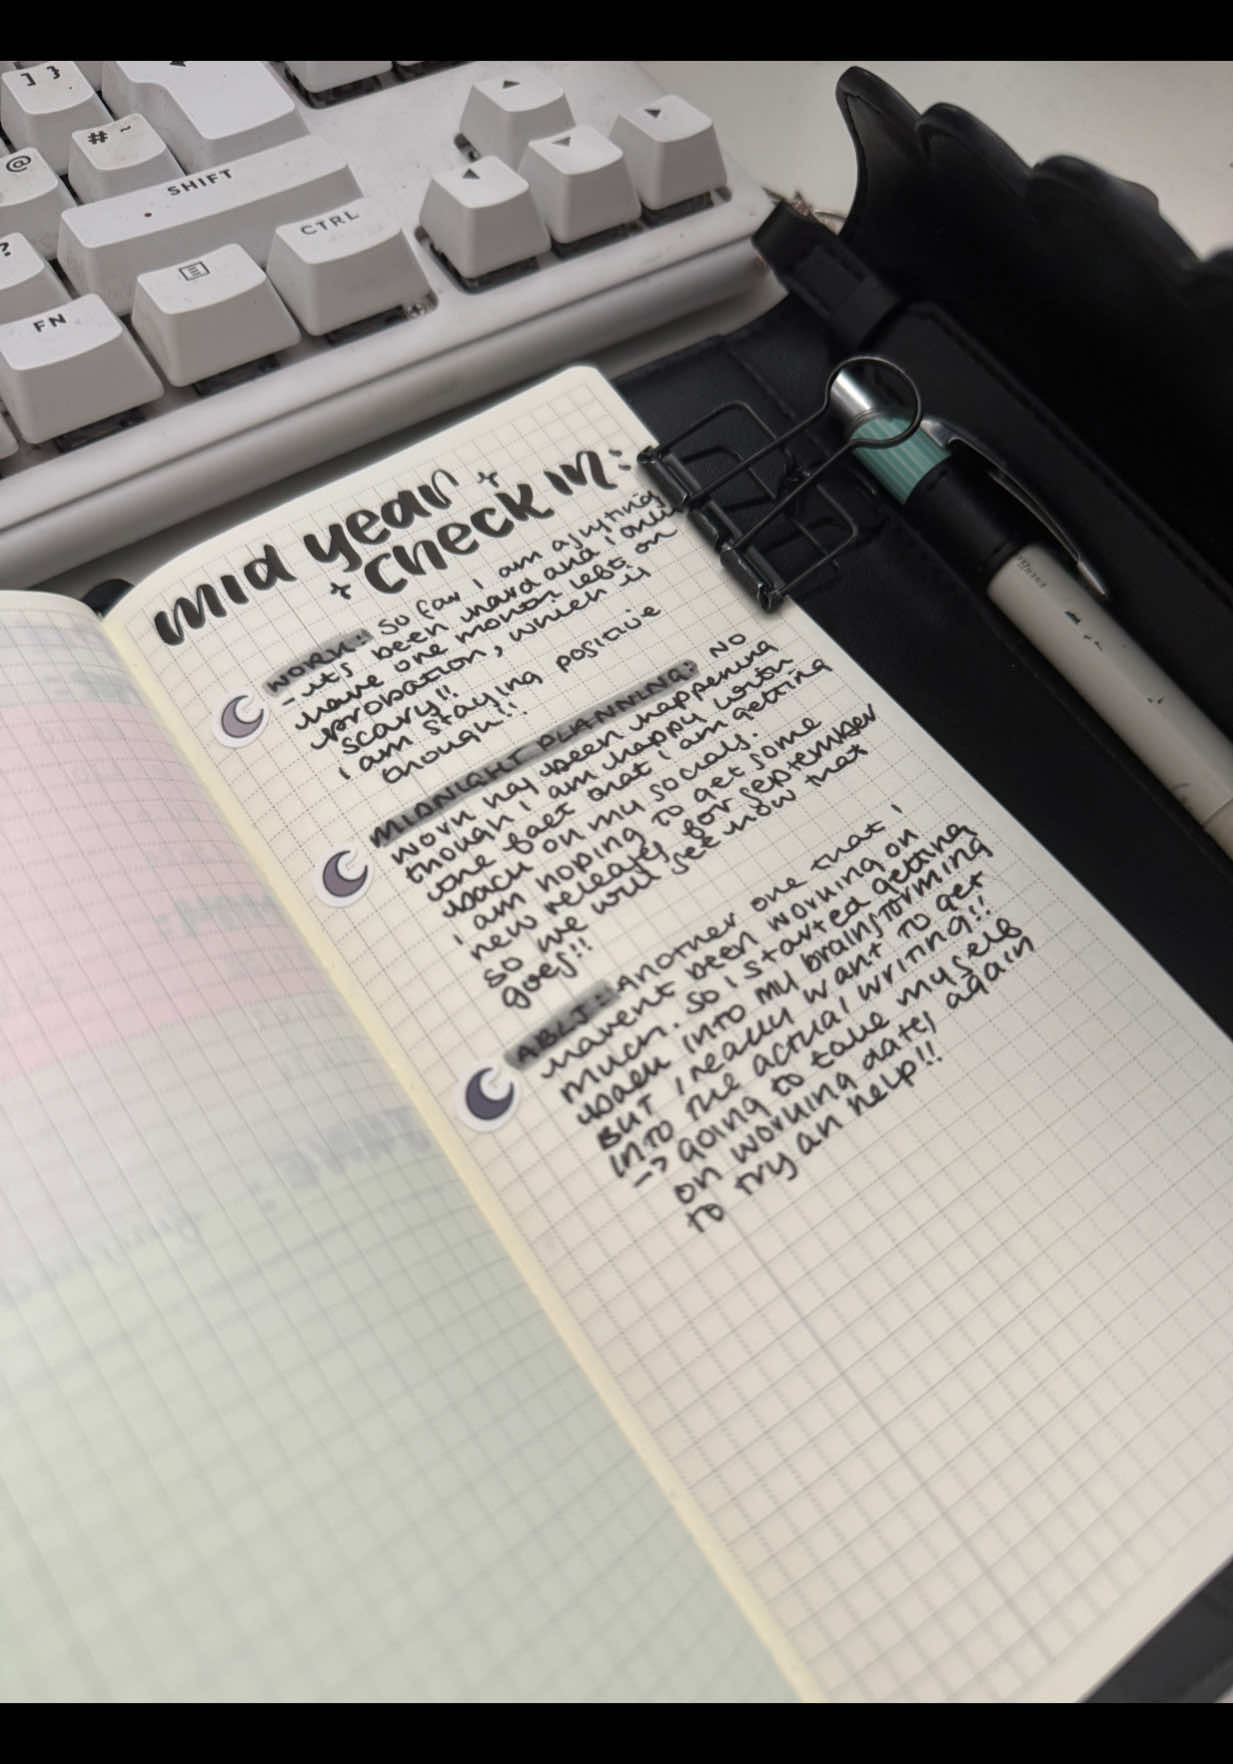 ] }
# ~
@
SHIFT
?
CTRL
FN
mid year
check in:
WORK: so far I am ajusting
- its been hard and I only
have one month left on
probation, which is
scary!!
I am staying positive
though!!
MIDNIGHT PLANNING: NO
work has been happening
though I am happy with
the fact that I am getting
back on my socials.
I am hoping to get some
new releases for september
so we will see how that
goes!!
ABLJ: Another one that I
havent been working on
much. So I started getting
back into my brainstorming
BUT I really want to get
INTO the actual writing!!
-> going to take myself
on working dates again
to try an help!!